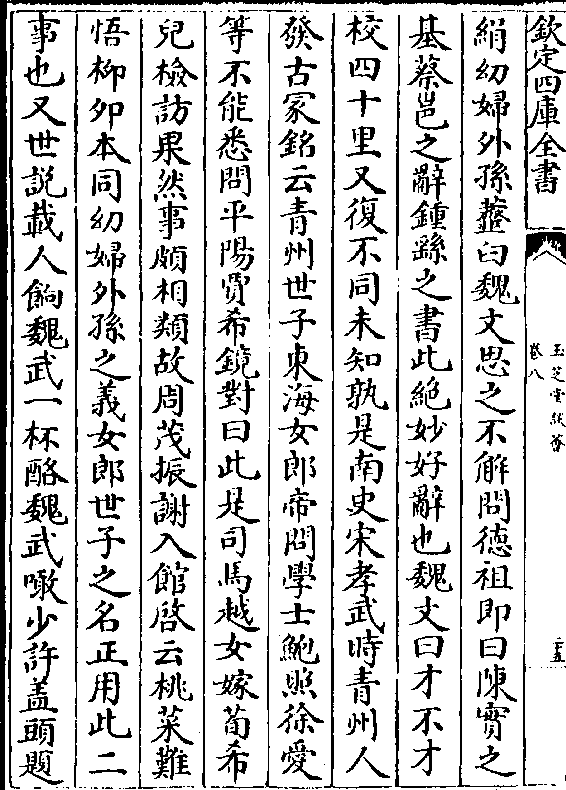 欽定四庫全書
玉芝堂談薈
卷八
二十五
絹幼婦外孫虀臼魏文思之不解問德祖即曰陳實之
基蔡邕之辭鍾繇之書此絶妙好辭也魏文曰才不才
校四十里又復不同未知孰是南史宋孝武時青州人
發古冢銘云青州世子東海女郎帝問學士鮑照徐爰
等不能悉問平陽賈希鏡對曰此是司馬越女嫁荀希
兒檢訪果然事頗相類故周茂振謝入館啓云桃菜難
悟柳夘本同幼婦外孫之義女郎世子之名正用此二
事也又世説載人餉魏武一杯酪魏武噉少許盖頭題